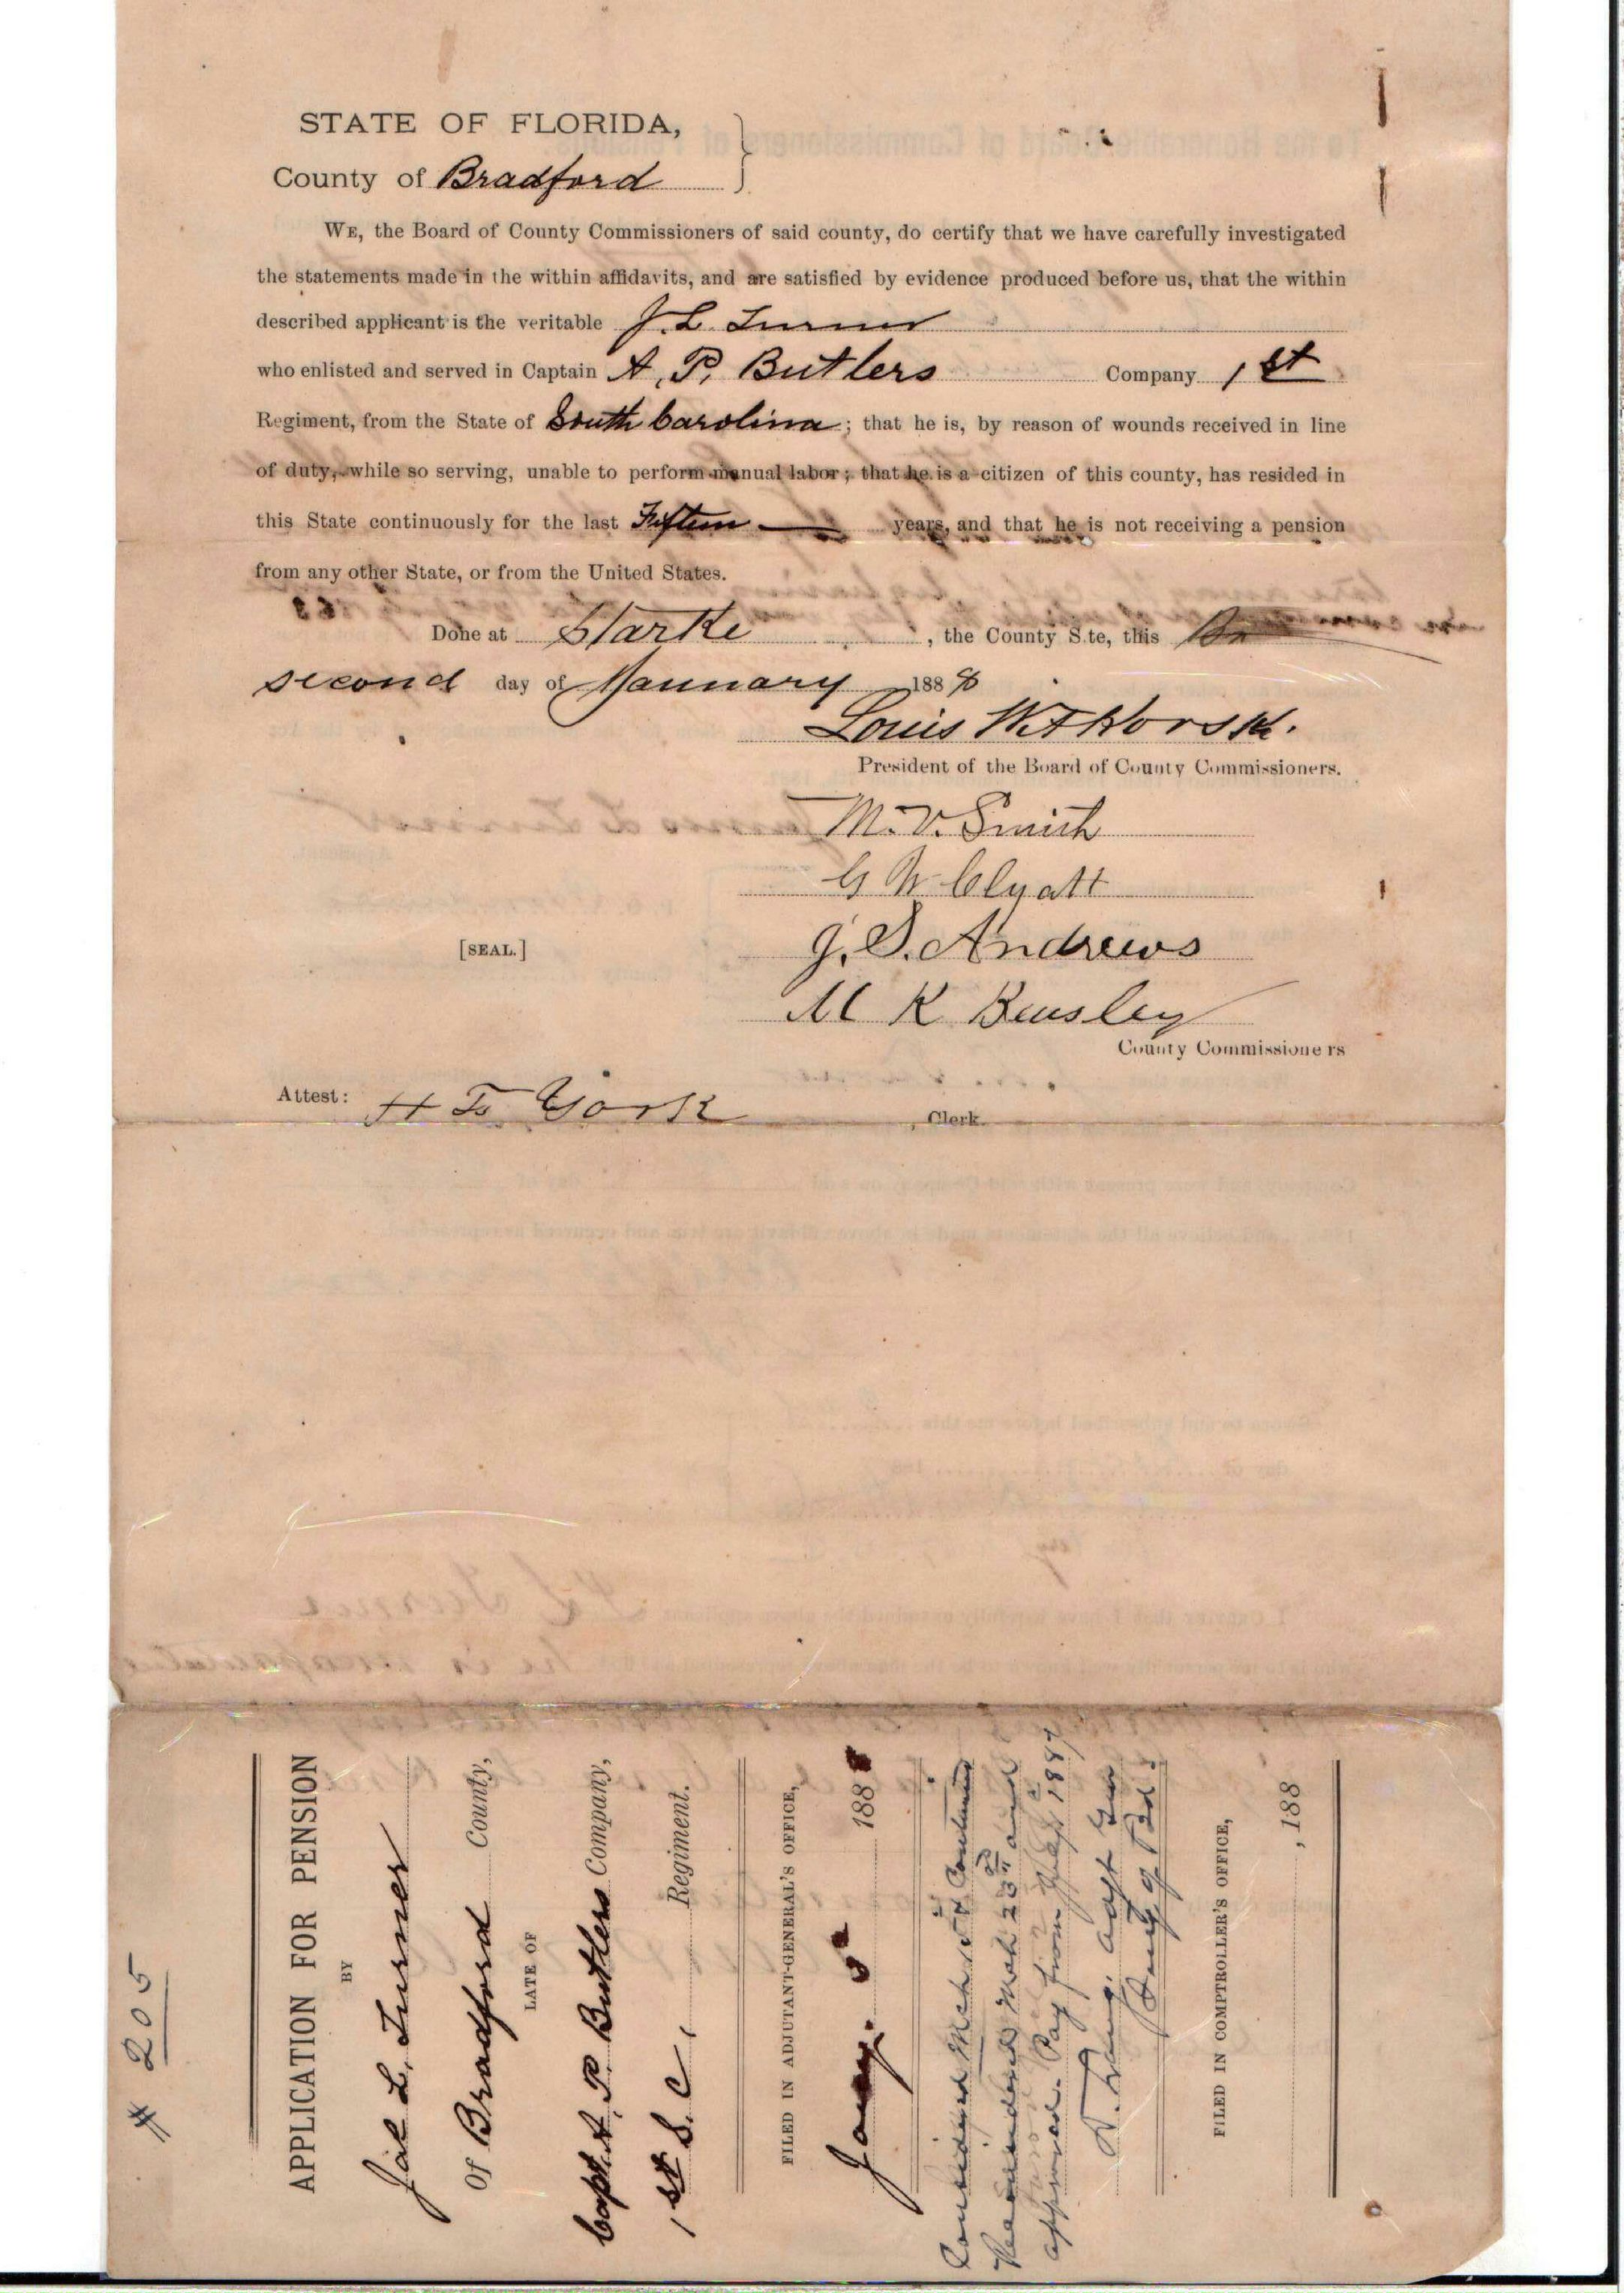 STATE OF FLORIDA,
County of Bradford
WE, the Board of County Commissioners of said county, do certify that we have carefully investigated
the statements made in the within affidavits, and are satisfied by evidence produced before us, that the within
described applicant is the veritable J. L. Turner
who enlisted and served in Captain A. P. Butlers Company 1st
Regiment, from the State of South Carolina; that he is, by reason of wounds received in line
of duty, while so serving, unable to perform manual labor; that he is a citizen of this county, has resided in
this State continuously for the last Fifteen years, and that he is not receiving a pension
from any other State, or from the United States.
Done at Starke, the County S te, this
second day of January 1888
Louis Witkovski.
President of the Board of County Commissioners.
M. V. Smith
G W Clyatt
J. S. Andrews
[SEAL.]
M K Beasley
County Commissioners
Attest: H F York, Clerk.
# 205
APPLICATION FOR PENSION
BY
Jas L. Turner
Of Bradford County,
LATE OF
Capt. A. P. Butlers Company,
1st S. C, Regiment.
FILED IN ADJUTANT-GENERAL'S OFFICE,
Jany. 5" 188
Considered Mch 15th Continued
Reconsidered Mch 23rd and
approved. Pay from 1887
D. Lang, Adjt Gen
Secy of Bd.
FILED IN COMPTROLLER'S OFFICE,
, 188